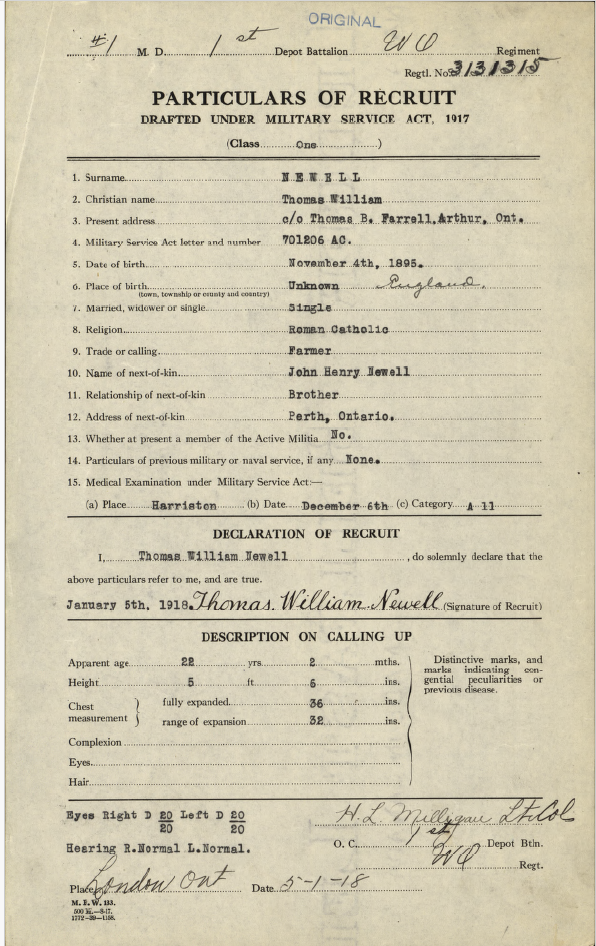 ORIGINAL
#1 M. D. 1st Depot Battalion WO Regiment
Regtl. No. 3131315
PARTICULARS OF RECRUIT
DRAFTED UNDER MILITARY SERVICE ACT, 1917
(Class One )
1. Surname NEWELL
2. Christian name Thomas William
3. Present address c/o Thomas B. Farrell, Arthur, Ont.
4. Military Service Act letter and number 701206 AC.
5. Date of birth November 4th, 1895.
6. Place of birth Unknown England.
(town, township or county and country)
7. Married, widower or single Single
8. Religion Roman Catholic
9. Trade or calling Farmer
10. Name of next-of-kin John Henry Newell
11. Relationship of next-of-kin Brother
12. Address of next-of-kin Perth, Ontario.
13. Whether at present a member of the Active Militia No.
14. Particulars of previous military or naval service, if any None.
15. Medical Examination under Military Service Act:—
(a) Place Harriston (b) Date December 6th (c) Category A 11
DECLARATION OF RECRUIT
I, Thomas William Newell , do solemnly declare that the
above particulars refer to me, and are true.
January 5th, 1918. Thomas. William. Newell (Signature of Recruit)
DESCRIPTION ON CALLING UP
Apparent age 22 yrs 2 mths.
Height 5 ft 6 ins.
Chest measurement } fully expanded 36 ins.
range of expansion 32 ins.
Complexion
Eyes
Hair
Distinctive marks, and
marks indicating con-
genital peculiarities or
previous disease.
Eyes Right D 20/20 Left D 20/20
Hearing R.Normal L.Normal.
H. L. Milligan Lt Col
O. C. 1st Depot Btln.
WO Regt.
Place London Ont Date 5-1-18
M. F. W. 133.
500 M.—8-17.
1772-39—1158.